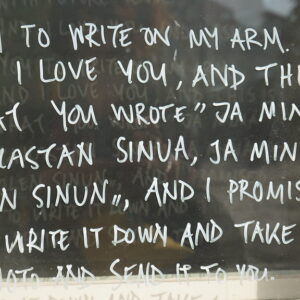 TO WRITE ON MY ARM.
I LOVE YOU, AND TH
AT YOU WROTE" JA MIN
ASTAN SINUA, JA MIN
N SINUN", AND I PROMIS
WRITE IT DOWN AND TAKE
AND SEND IT TO YOU.